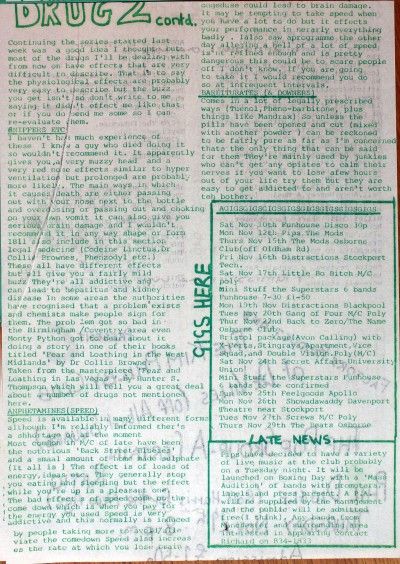 DRUGZ contd.
Continuing the series started last
week was a good idea I thought but
most of the drugs I'll be dealing with
from now on have effects that are very
difficult to describe. That is to say
the physiological effects are probably
very easy to describe but the buzz
you get isn't so don't write to me
saying it didn't effect me like that
or if you do send me some so I can
re-evaluate them.
SNIFFERS ETC
I haven't had much experience of
these. I knew a guy who died doing it
so wouldn't recommend it. It apparently
gives you a very muzzy head and a
very red nose effects similar to hyper
ventilation but prolonged are probably
more likely. The main ways in which
it causes death are either passing
out with your nose next to the bottle
and overdosing or passing out and choking
on your own vomit it can also give you
serious brain damage and I wouldn't
recommend it in any way shape or form
I'll also include in this section
legal medicine (Codeine linctus, Dr
Collis Brownes, Phensodyl etc).
These all have different effects
but all give you a fairly mild
buzz They're all addictive and
can lead to hepatitus and kidney
disease In some areas the authorities
have recognised that a problem exists
and chemists make people sign for
them. The problem got so bad in
the Birmingham /Coventry area even
Monty Python got to hear about it
doing a story in one of their books
titled "Fear and Loathing in the West
Midlands" by Dr Collis Browne
Taken from the masterpiece "Fear and
Loathing in Las Vegas" by Hunter S.
Thompson which will tell you a great deal
about a number of drugs not mentioned
here.
AMPHETAMINES(SPEED)
Speed is available in many different forms
although I'm reliably informed there's
a shortage at the moment
Most common in M/C of late have been
the notorious "Back Street Blues"
and a small amount of home made sulphate
(it all is) The effect is of loads of
energy, ideas etc They generally stop
you eating and sleeping but the effect
while you're up is a pleasant one.
The bad effect of speed comes on the
come down which is when you pay for
the energy you used Speed is very
addictive and this normally is induced
by people taking more to avoid
viate the comedown Speed also increas
es the rate at which you lose brain
overuse could lead to brain damage.
It may be tempting to take speed when
you have a lot to do but it effects
your performance in nerarly everything
badly. I also saw a programme the other
day alleging a hell of a lot of speed
isn't refined enough and is pretty
dangerous this could be to scare people
off I don't know. If you are going
to take it I would recommend you do
so at infrequent intervals.
BARBITURATES (& DOWNERS)
Comes in a lot of legally prescribed
ways (Tuenol, Pheno-barbitone, plus
things like Mandrax) So unless the
pills have been opened and cut (mixed
with another powder ) can be reckoned
to be fairly pure as far as I'm concerned
thats the only thing that can be said
for them They're mainly used by junkies
who can't get any opiates to calm their
nerves if you want to lose afew hours
out of your life try them But they are
easy to get addicted to and aren't worth
teh bother.
GIGS HERE
Sat Nov 10th Funhouse Disco 10p
Mon Nov 12th Fips The Mods
Thurs Nov 15th The Mods Osborne
Club(off Oldham Rd)
Fri 16th Nov Distractions Stockport
Tech.
Sat Nov 17th Little Bo Bitch M/C
poly
Mini Stuff the Superstars 6 bands
Funhouse 7-30 £1-50
Mon 19th Nov Distractions Blackpool
Tues Nov 20th Gang of Four M/C Poly
Thur Nov 22nd Back to Zero/The Name
Osborne Club
X-perts package(Avon Calling) with
X-perts, Stingrays, Apartment, Vice
Squad, and Double Vision. Poly(M/C)
Sat Nov 24th Secret Affair University
Union
Mini Stuff the Superstars Funhouse
Sun Nov 25th Feelgoods Apollo
Mon Nov 26th Showadawaddy Davenport
Theatre near Stockport
Tues Nov 27th Screws M/C Poly
Thurs Nov 29th The Beats Osborne
LATE NEWS
Fips have decided to have a variety
of live music at the club probably
on a Tuesday night. It will be
launched on Boxing Day with a "Mod
Audition" of bands with promoters,
labels and press present. A bar
will be supplied by the management
and the public will be admitted
free(I think). Any bands from
Manchester and surrounding area
interested in appearing contact
Richard on